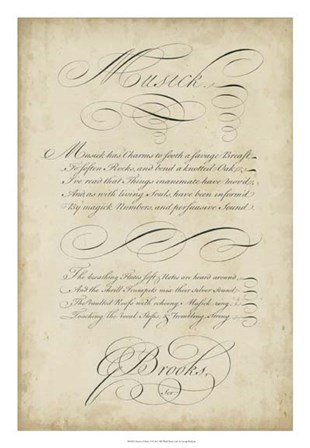 Musick.
Musick has Charms to sooth a savage Breast
To soften Rocks, and bend a knotted Oak
I've read that Things inanimate have mov'd
And, as with living Souls, have been inform'd
By magick Numbers, and persuasive Sound
The breathing Flutes soft Notes are heard around
And the shrill Trumpets mix their Silver Sound
The vaulted Roofs with echoing Musick ring
Touching the vocal Pipe & trembling String
Brooks.